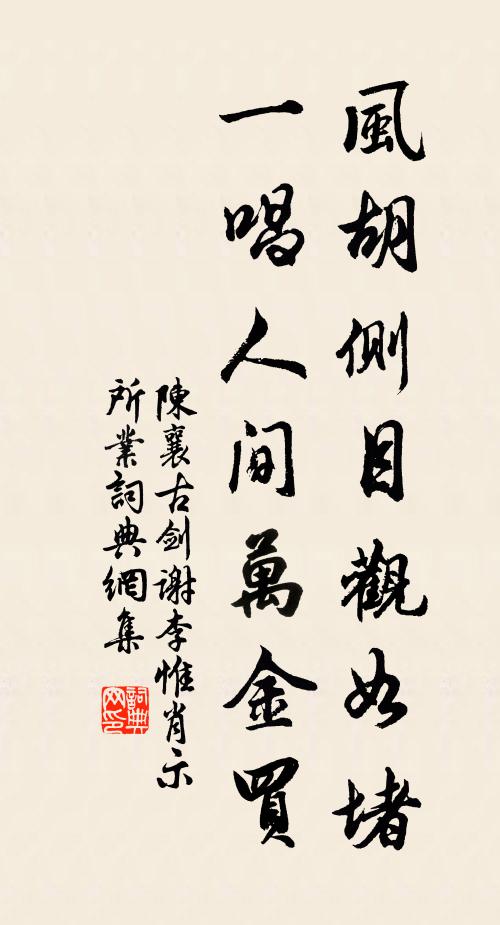 風胡側目觀如堵
一唱人间萬金買
陳襄古剑谢李惟肖示
所業詞典網集
詞典網印